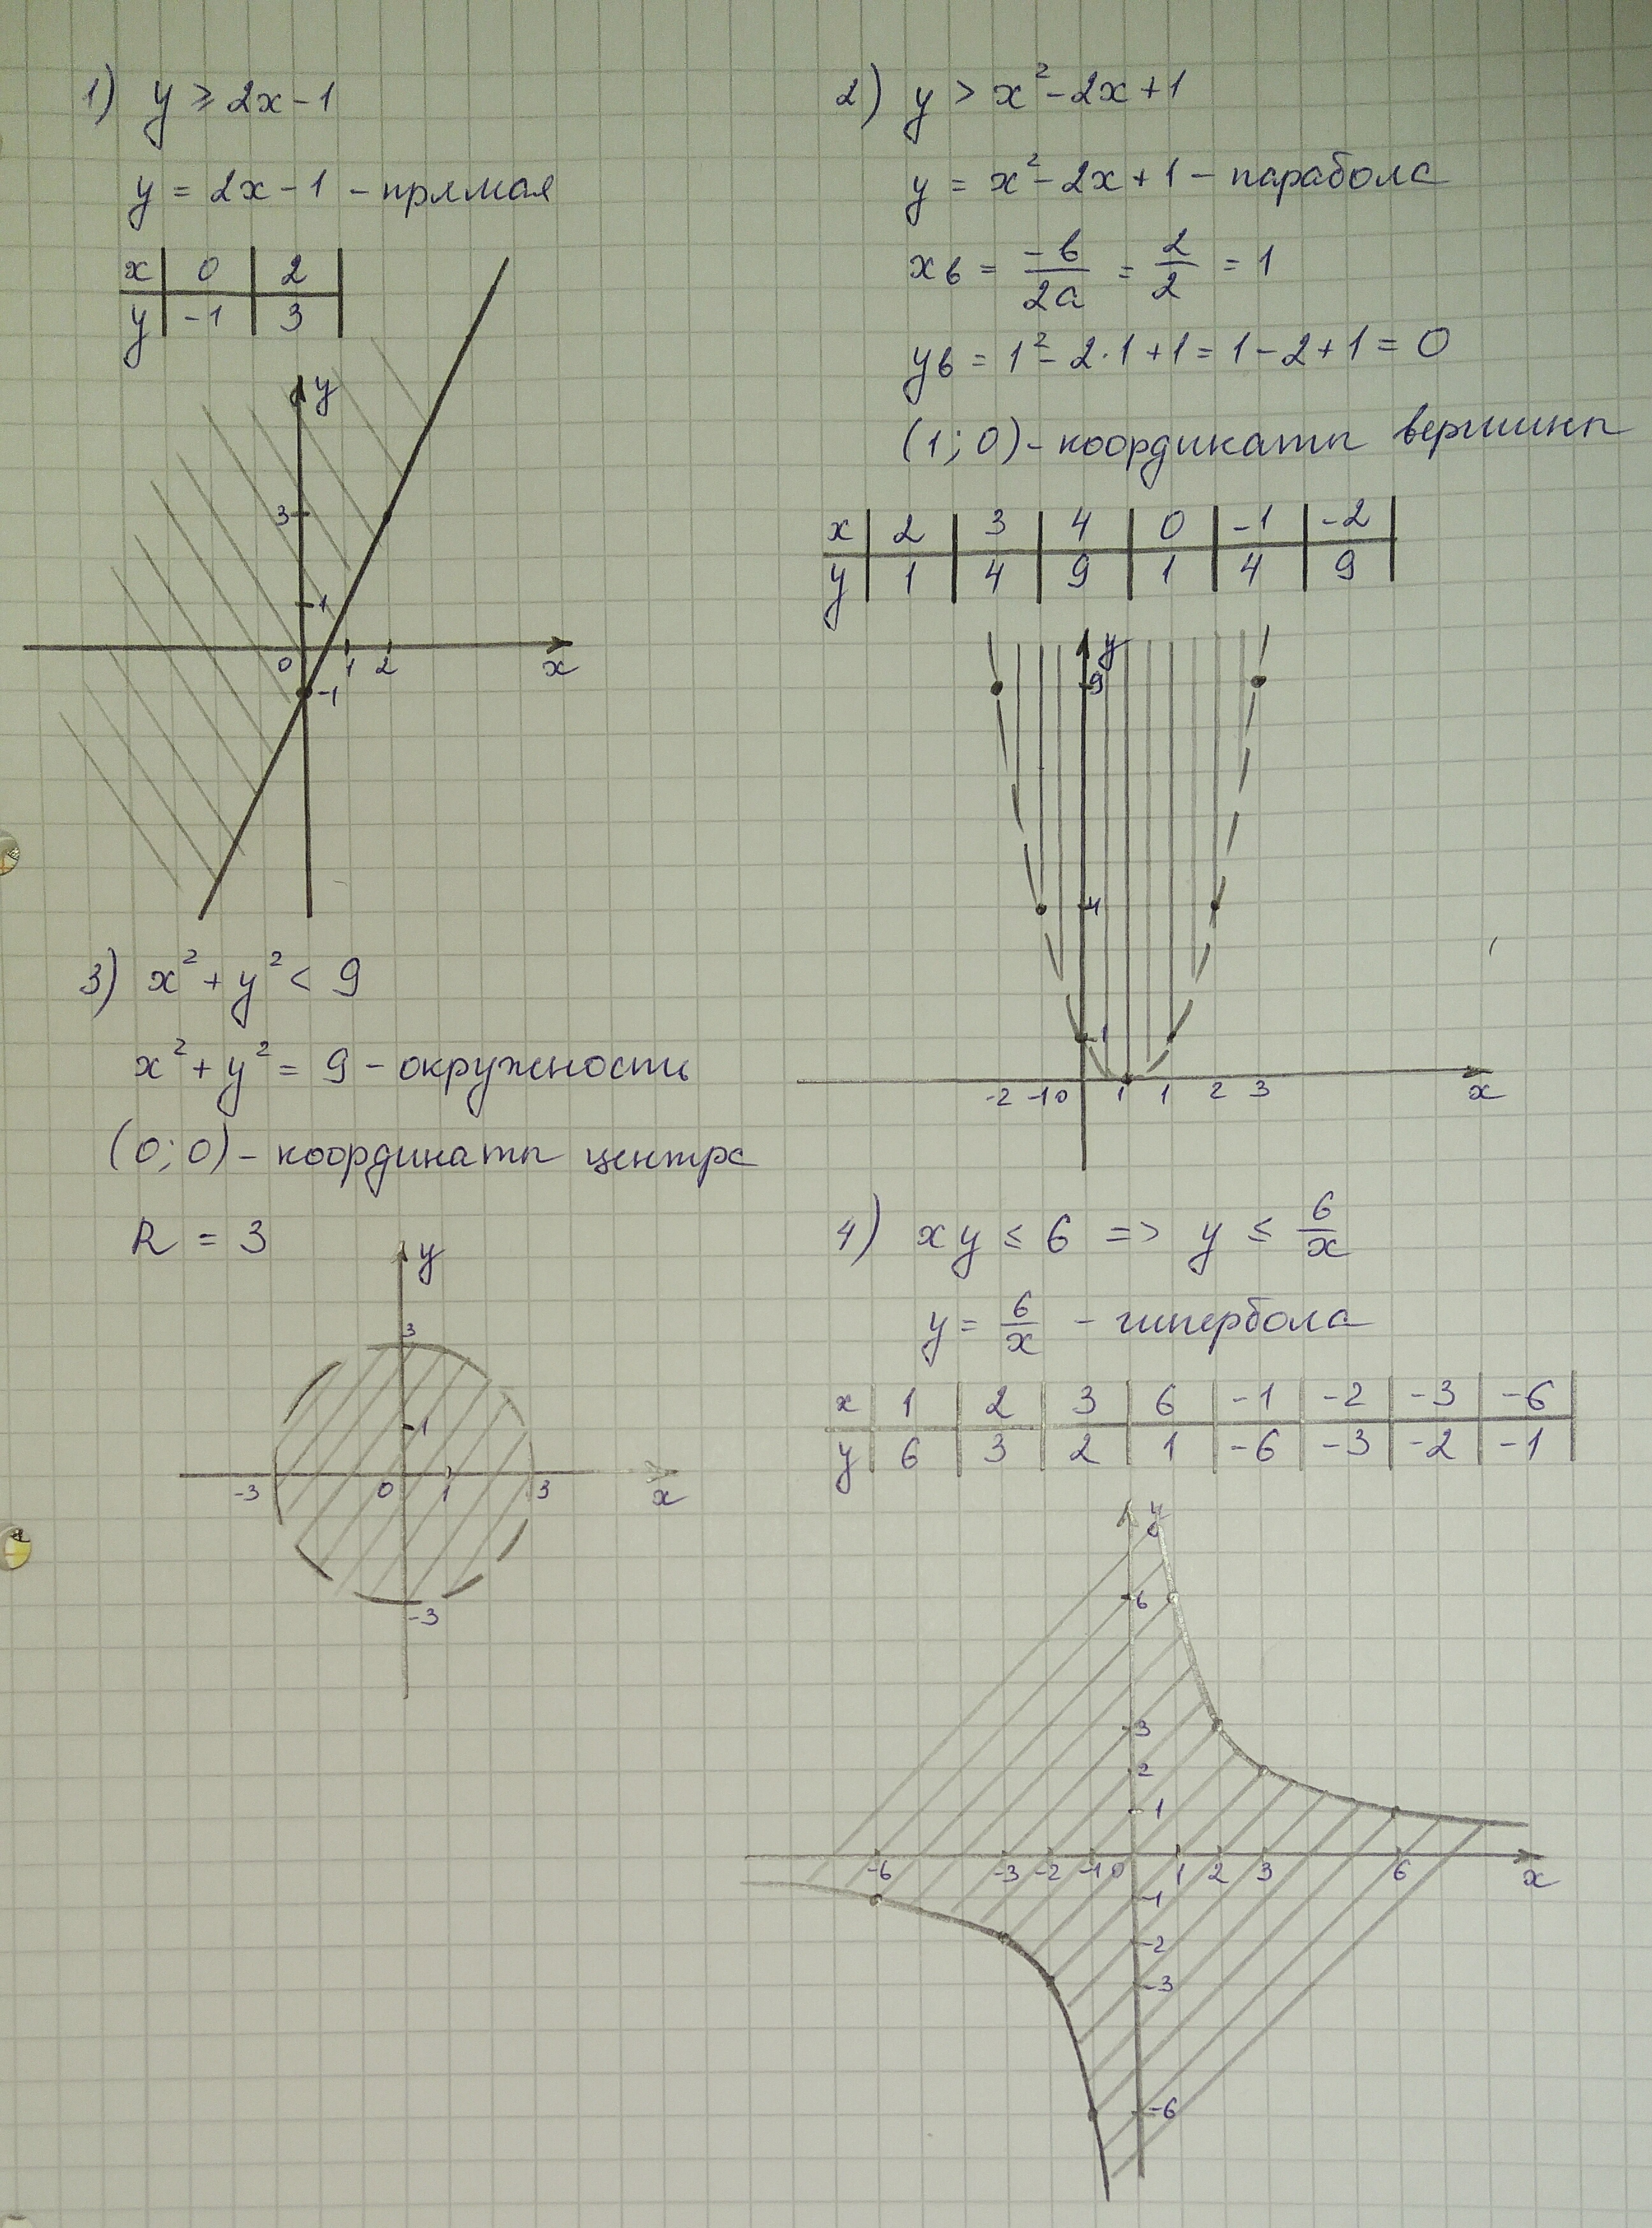 1) y ≥ 2x - 1
y = 2x - 1 - прямая
x | 0 | 2 |
y | -1 | 3 |
y
3
1
0 1 2 x
-1
2) y > x² - 2x + 1
y = x² - 2x + 1 - парабола
xв = -b/2a = 2/2 = 1
yв = 1² - 2·1 + 1 = 1 - 2 + 1 = 0
(1; 0) - координаты вершины
x | 2 | 3 | 4 | 0 | -1 | -2 |
y | 1 | 4 | 9 | 1 | 4 | 9 |
y
9
4
1
-2 -1 0 1 1 2 3 x
3) x² + y² < 9
x² + y² = 9 - окружность
(0; 0) - координаты центра
R = 3
y
3
1
-3 0 1 3 x
-3
4) xy ≤ 6 => y ≤ 6/x
y = 6/x - гипербола
x | 1 | 2 | 3 | 6 | -1 | -2 | -3 | -6 |
y | 6 | 3 | 2 | 1 | -6 | -3 | -2 | -1 |
y
6
3
2
1
-6 -3 -2 -1 0 1 2 3 6 x
-1
-2
-3
-6